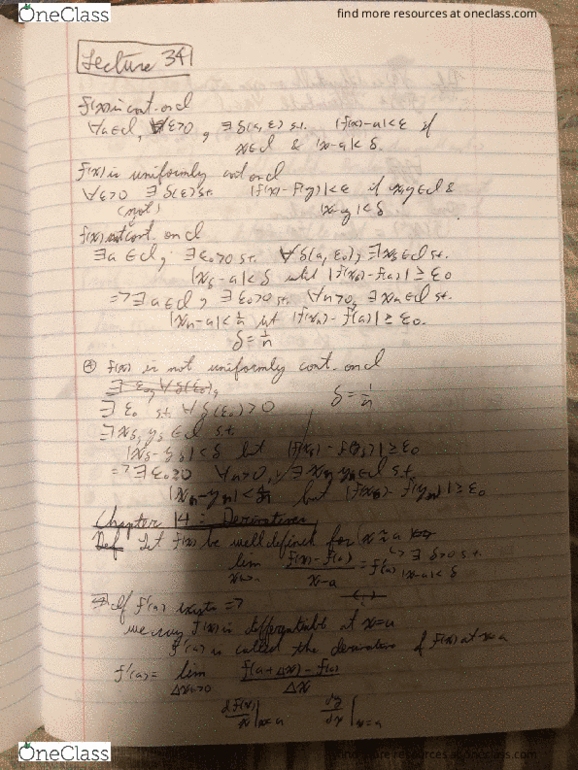 OneClass
find more resources at oneclass.com
Lecture 34
f(x) is cont. on d
∀a∈d, ∀ε>0, ∃ δ(a, ε) s.t. |f(x)-a|<ε if
x∈d & |x-a|<δ.
f(x) is uniformly cont on d
∀ε>0 ∃ δ(ε) s.t. |f(x)-f(y)|<ε if x,y∈d &
(not) |x-y|<δ
f(x) not cont. on d
∃a∈d, ∃ε₀>0 s.t. ∀δ(a, ε₀), ∃xδ∈d s.t.
|xδ-a|<δ but |f(xδ)-f(a)|≥ε₀
=> ∃a∈d, ∃ε₀>0 s.t. ∀n>0, ∃xn∈d s.t.
|xn-a|<1/n but |f(xn)-f(a)|≥ε₀.
δ=1/n
f(x) is not uniformly cont. on d
∃ ε₀ s.t. ∀δ(ε₀)>0 δ=1/n
∃xδ, yδ∈d s.t.
|xδ-yδ|<δ but |f(xδ)-f(yδ)|≥ε₀
=> ∃ε₀≥0 ∀n>0, ∃xn yn∈d s.t.
|xn-yn|<1/n but |f(xn)-f(yn)|≥ε₀
Chapter 14: Derivatives
Def Let f(x) be well defined for x≈a
lim x→a f(x)-f(a) / x-a = f'(a) ↳ ∃ δ>0 s.t. |x-a|<δ
If f'(a) exists =>
we say f(x) is differentiable at x=a
f'(a) is called the derivative of f(x) at x=a
f'(a)= lim Δx→0 f(a+Δx)-f(a) / Δx
df(x)/x |x=a dy/dx |x=a
OneClass
find more resources at oneclass.com